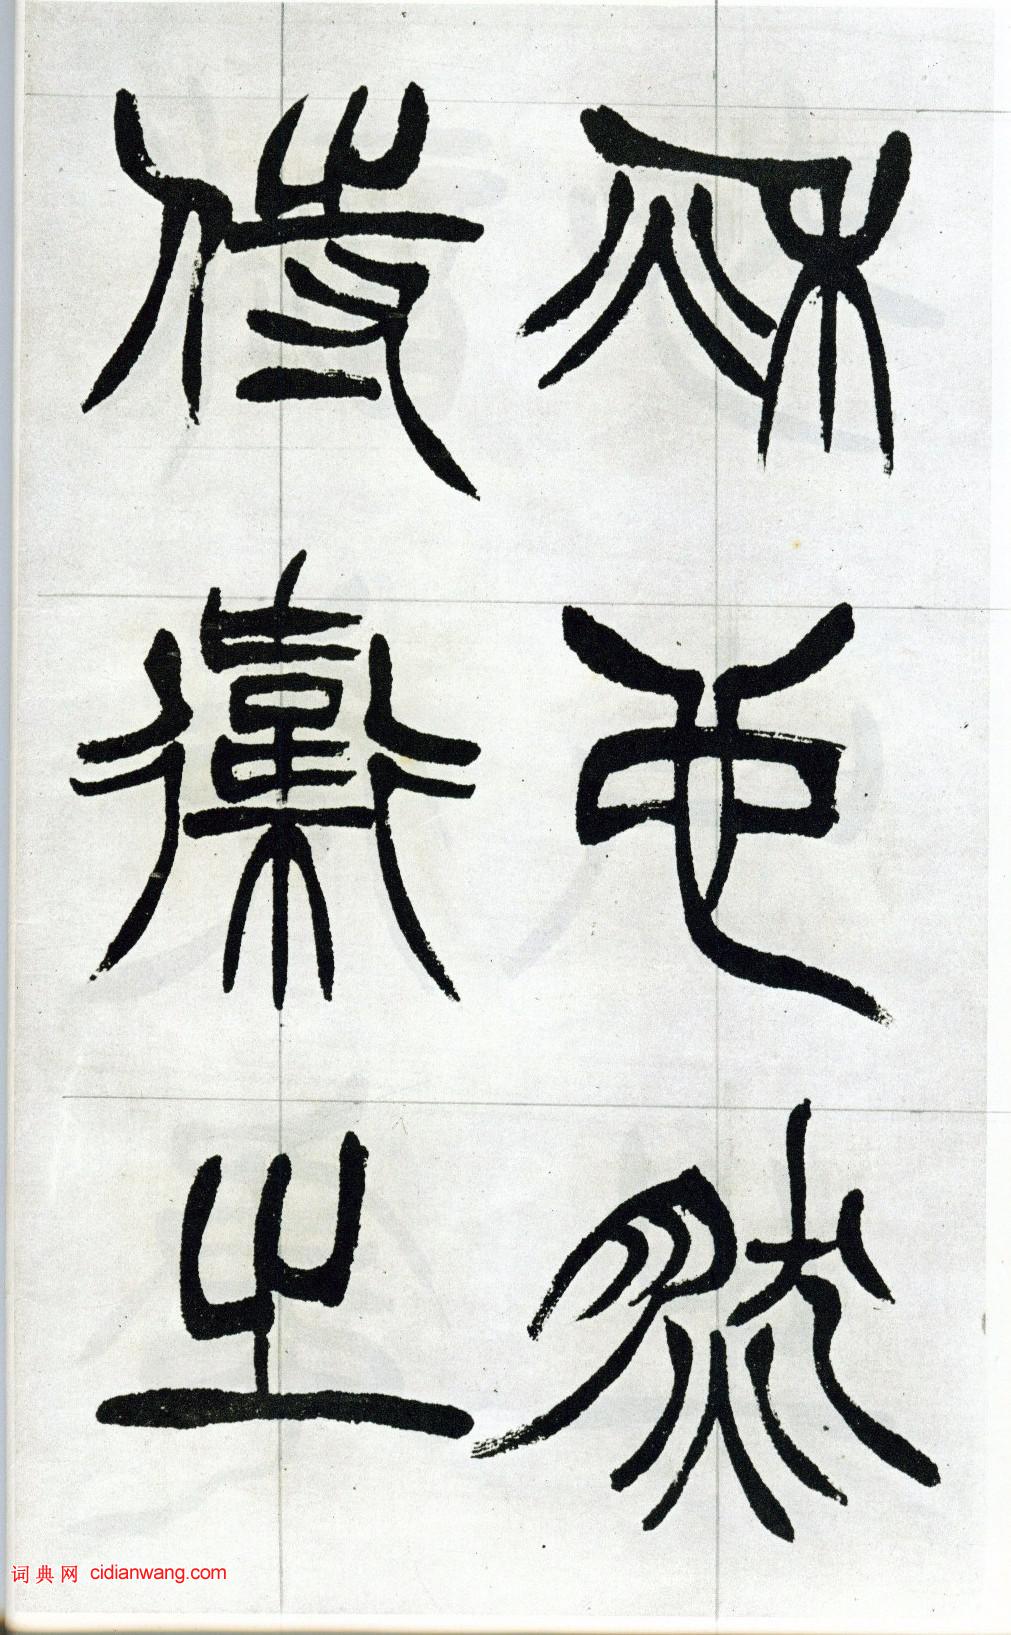 秋也然
侍衛之
词典网 cidianwang.com